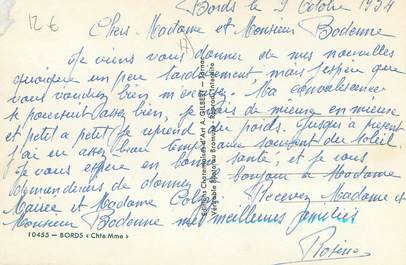 12€
Bords le 9 Octobre 1954
Chers Madame et Monsieur Bodenne
Je viens vous donner de mes nouvelles
quoique un peu tardivement, mais j'espère que
vous voudrez bien m'excusez. Ma convalescence
se poursuit assez bien, je vais de mieux en mieux
et petit a petit je reprend du poids. Jusqu'a présent
j'ai eu assez beau temps avec souvent du soleil
Je vous espère en bonne santé, et je vous
demanderais de donner bonjour à Madame
Mairee et Madame Colas. Recevez Madame et
Monsieur Bodenne mes meilleures amitiés
10455 — BORDS « Chte Mme »
Édition Charentaise d'Art A. GILBERT
Véritable Photo au Bromure - Reprod. interdite